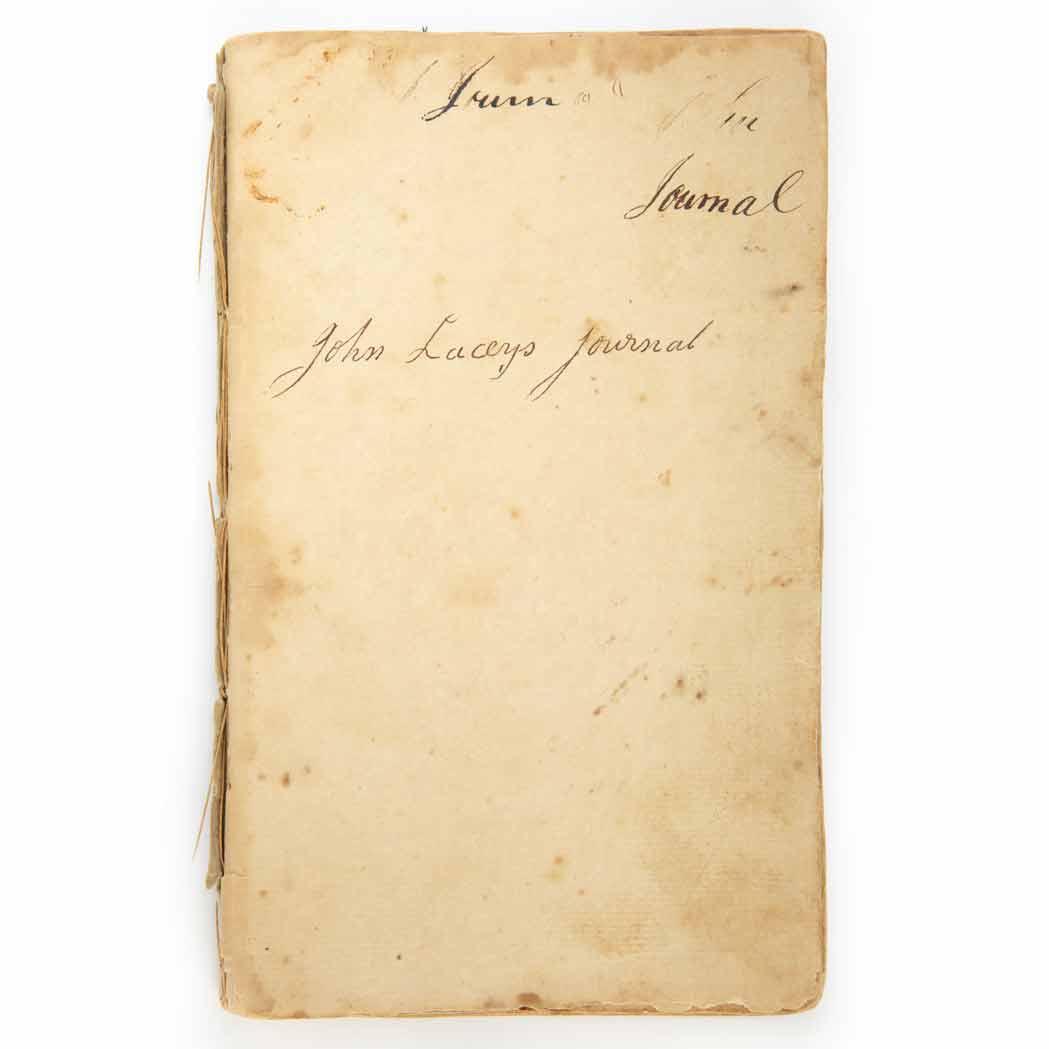 Journal
John Laceys Journal